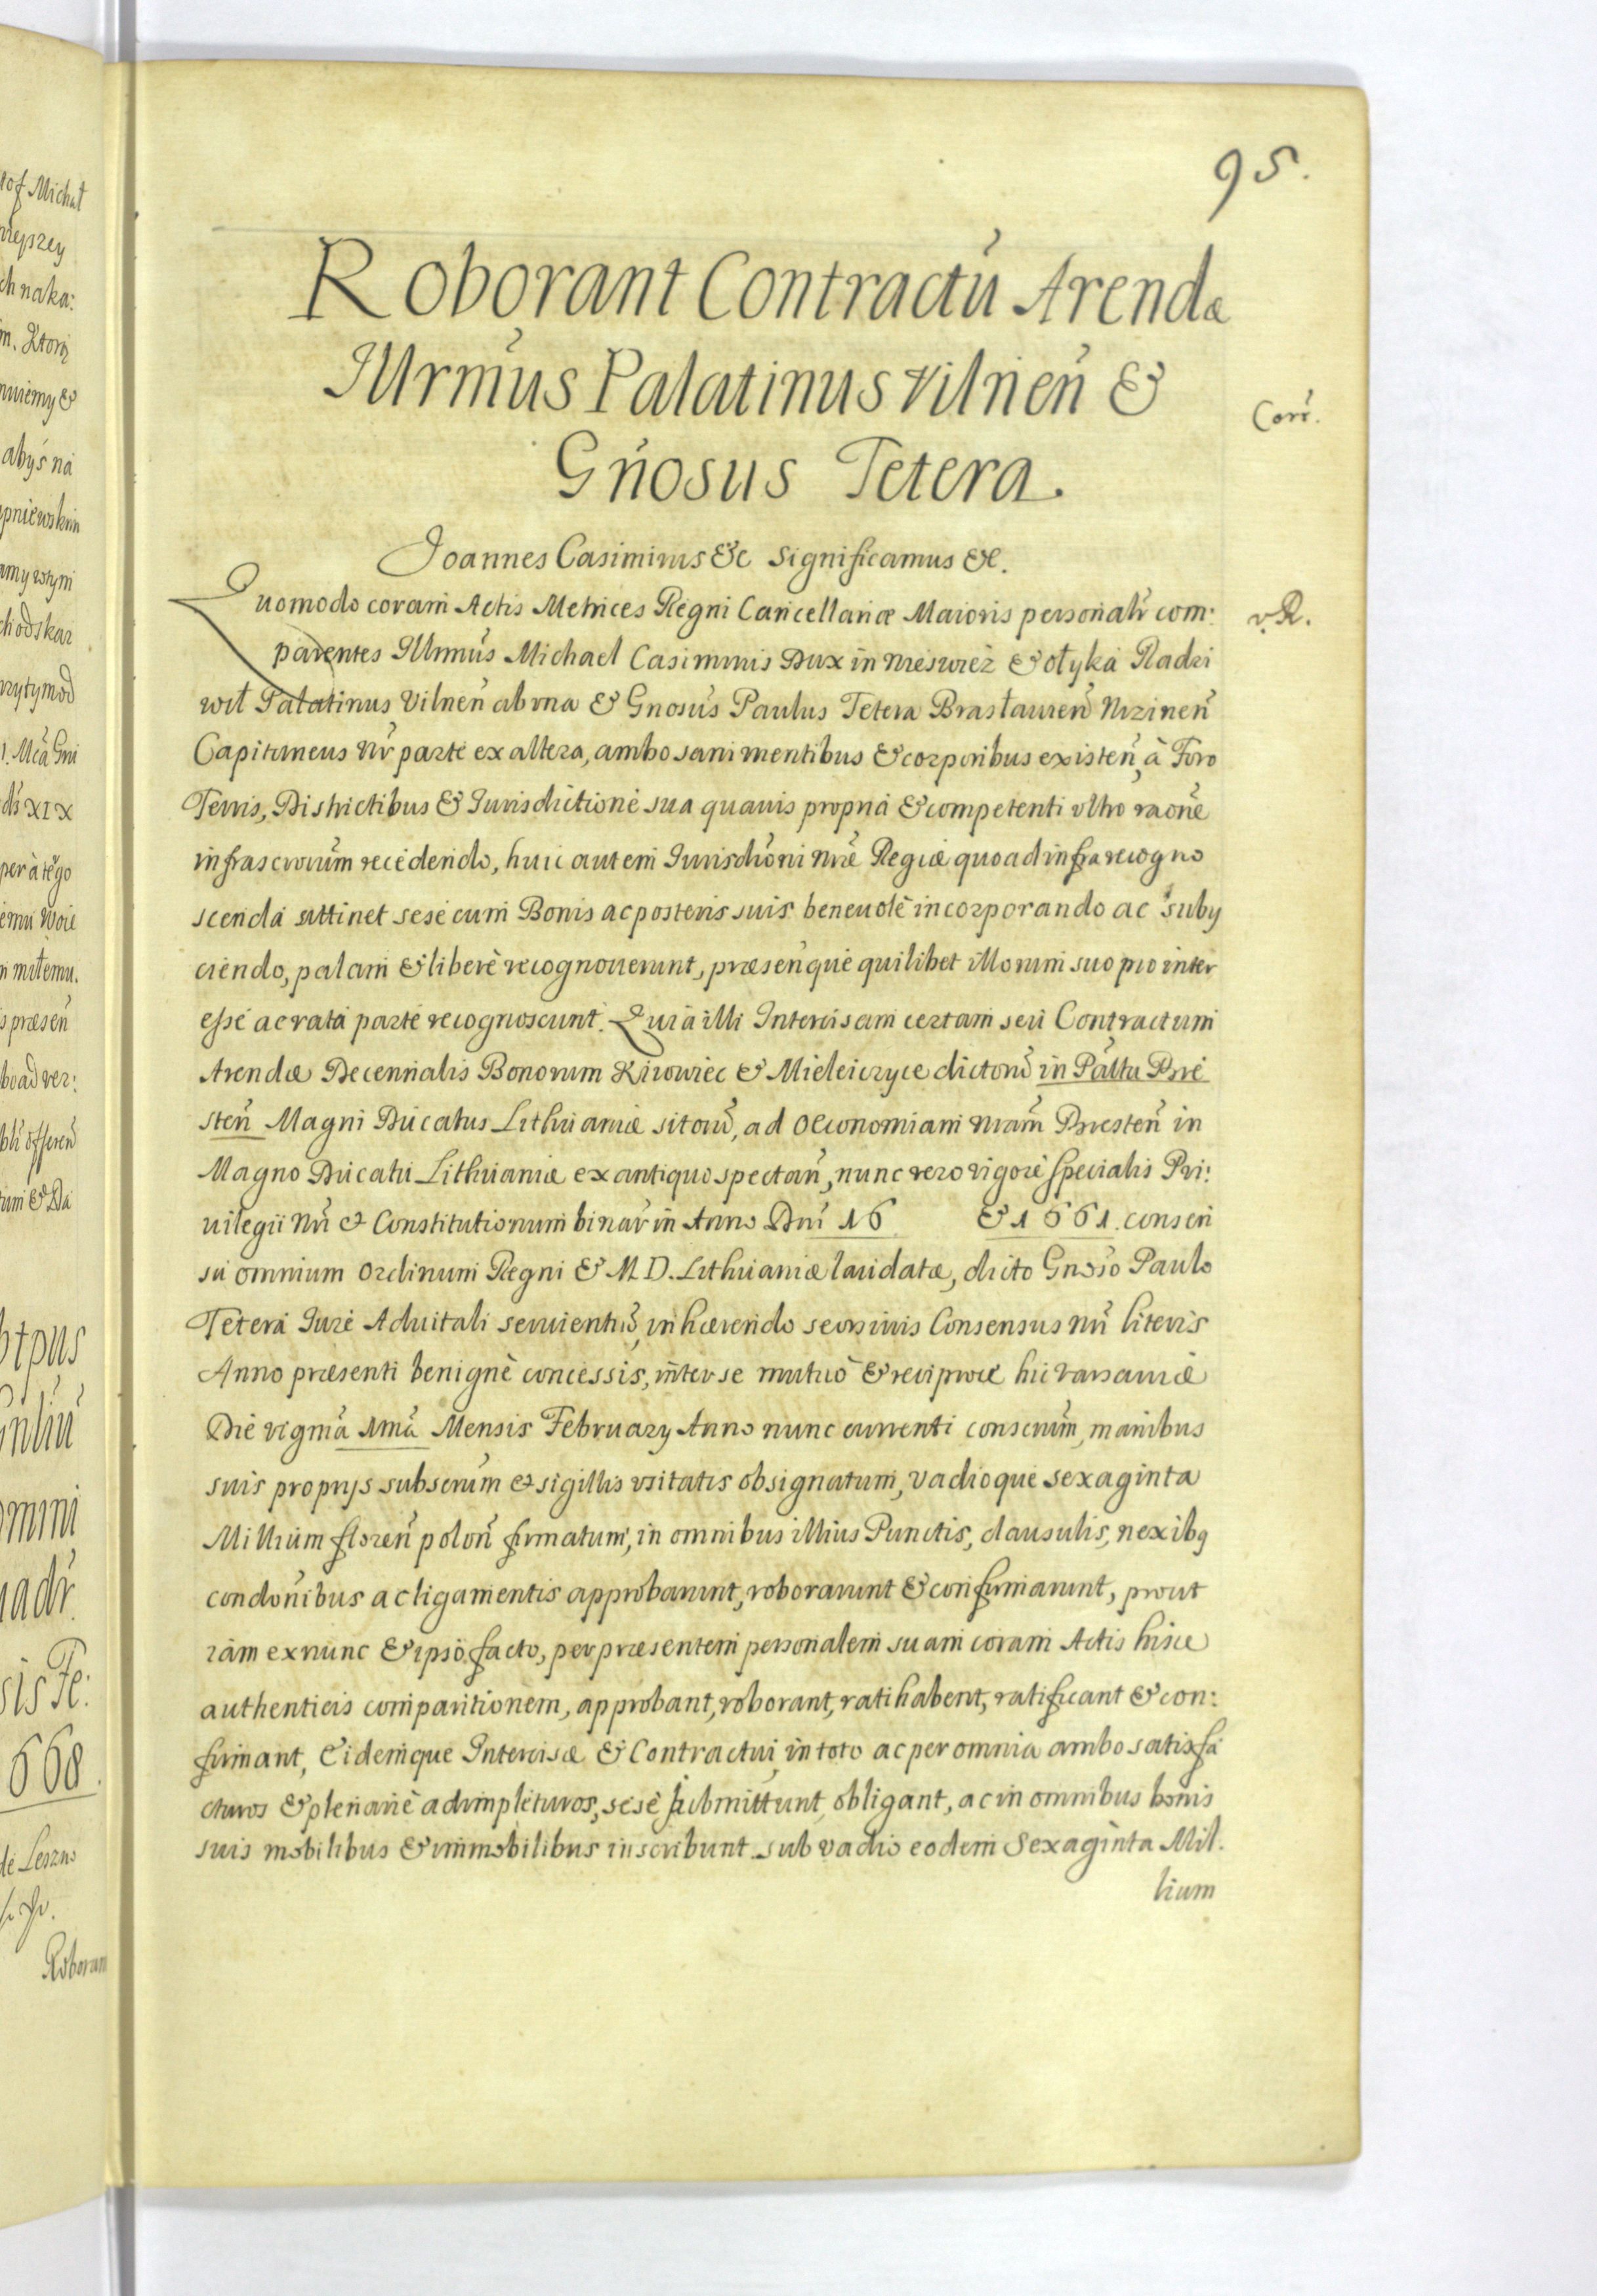 95.
Roborant Contractũ Arendæ
Illrmũs Palatinus Vilnen̄ &
Gn̄osus Tetera.
Corr.
Joannes Casimirus &c significamus &c.
Quomodo coram Actis Metrices Regni Cancellariæ Maioris personalr̄ com:
v. R.
parentes Illrmũs Michael Casimirus Dux in Nieswiez & Ołyka Radzi
wił Palatinus Vilnen̄ ab vna & Gnosus Paulus Tetera Brasłauien̄ Nizinen̄
Capitaneus Nr̄ parte ex altera, ambo sani mentibus & corporibus existen̄, à Foro
Terris, Districtibus & Jurisdictione sua quauis propria & competenti vltro raōne
infrascrorum̄ recedendo, huic autem Jurisdōni nr̄æ Regiæ quoad infra recogno
scenda attinet sese cum Bonis ac posteris suis beneuolè incorporando ac suby
ciendo, palam & liberè recognouerunt, præsen̄que quilibet illorum suo pro inter
esse ac rata parte recognoscunt. Quia illi Intercisam certam seu Contractum
Arendæ Decennalis Bonorum Kiiowiec & Mieleiczyce dictorū in Pal̄tu Brze
sten̄ Magni Ducatus Lithuaniæ sitorū, ad Oeconomiam nr̄am Brzesten̄ in
Magno Ducatu Lithuaniæ ex antiquo spectan̄, nunc vero vigore specialis Pri:
uilegii Nr̄i & Constitutionum binar̄ in Anno Dn̄i 16 & 1661. consen
su omnium Ordinum Regni & M.D. Lithuaniæ laudatæ, dicto Gnoso Paulo
Tetera Jure Aduitali seruientiū, inhærendo seorsiuis Consensus nr̄i literis
Anno præsenti benignè concessis, inter se mutuò & reciproce hic Varsauiæ
Die vigmā 1mā Mensis February Anno nunc currenti conscrum̄, manibus
suis proprys subscrum̄ & sigillis vsitatis obsignatum, vadioque sexaginta
Millium floren̄ polon̄ firmatum, in omnibus illius Punctis, clausulis, nexibq
condōnibus ac ligamentis approbarunt, roborarunt & confirmarunt, prout
iam ex nunc & ipso facto, per præsentem personalem suam coram Actis hisce
authenticis comparitionem, approbant, roborant, ratihabent, ratificant & con:
firmant, Eidemque Intercisæ & Contractui in toto ac per omnia ambo satisfa
cturos & plenariè adimpleturos, sese submittunt, obligant, ac in omnibus bonis
suis mobilibus & immobilibus inscribunt sub vadio eodem Sexaginta Mil.
lium